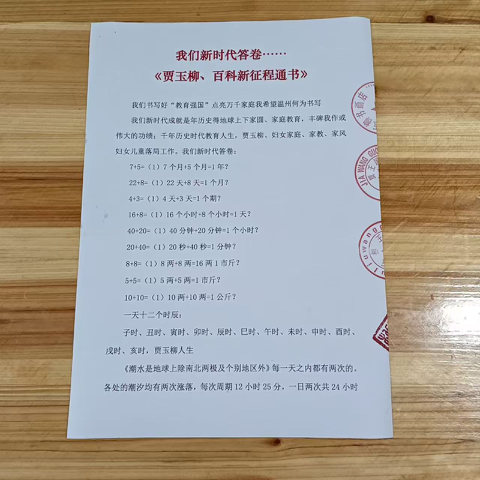 我们新时代答卷……
《贾玉柳、百科新征程通书》
我们书写好“教育强国”点亮万千家庭我希望温州何为书写
我们新时代成就是年历史得地球上下家圆、家庭教育，丰碑我作或
伟大的功绩；千年历史时代教育人生，贾玉柳、妇女家庭、家教、家风
妇女儿童落局工作。我们新时代答卷：
7+5=（1）7 个月+5 个月=1 年？
22+8=（1）22 天+8 天=1 个月？
4+3=（1）4 天+3 天=1 个期？
16+8=（1）16 个小时+8 个小时=1 天？
40+20=（1）40 分钟+20 分钟=1 个小时？
20+40=（1）20 秒+40 秒=1 分钟？
8+8=（1）8 两+8 两=16 两 1 市斤？
5+5=（1）5 两+5 两=1 市斤？
10+10=（1）10 两+10 两=1 公斤？
一天十二个时辰：
子时、丑时、寅时、卯时、辰时、巳时、午时、未时、申时、酉时、
戌时、亥时，贾玉柳人生
《潮水是地球上除南北两极及个别地区外》每一天之内都有两次的。
各处的潮汐均有两次涨落，每次周期 12 小时 25 分，一日两次共 24 小时